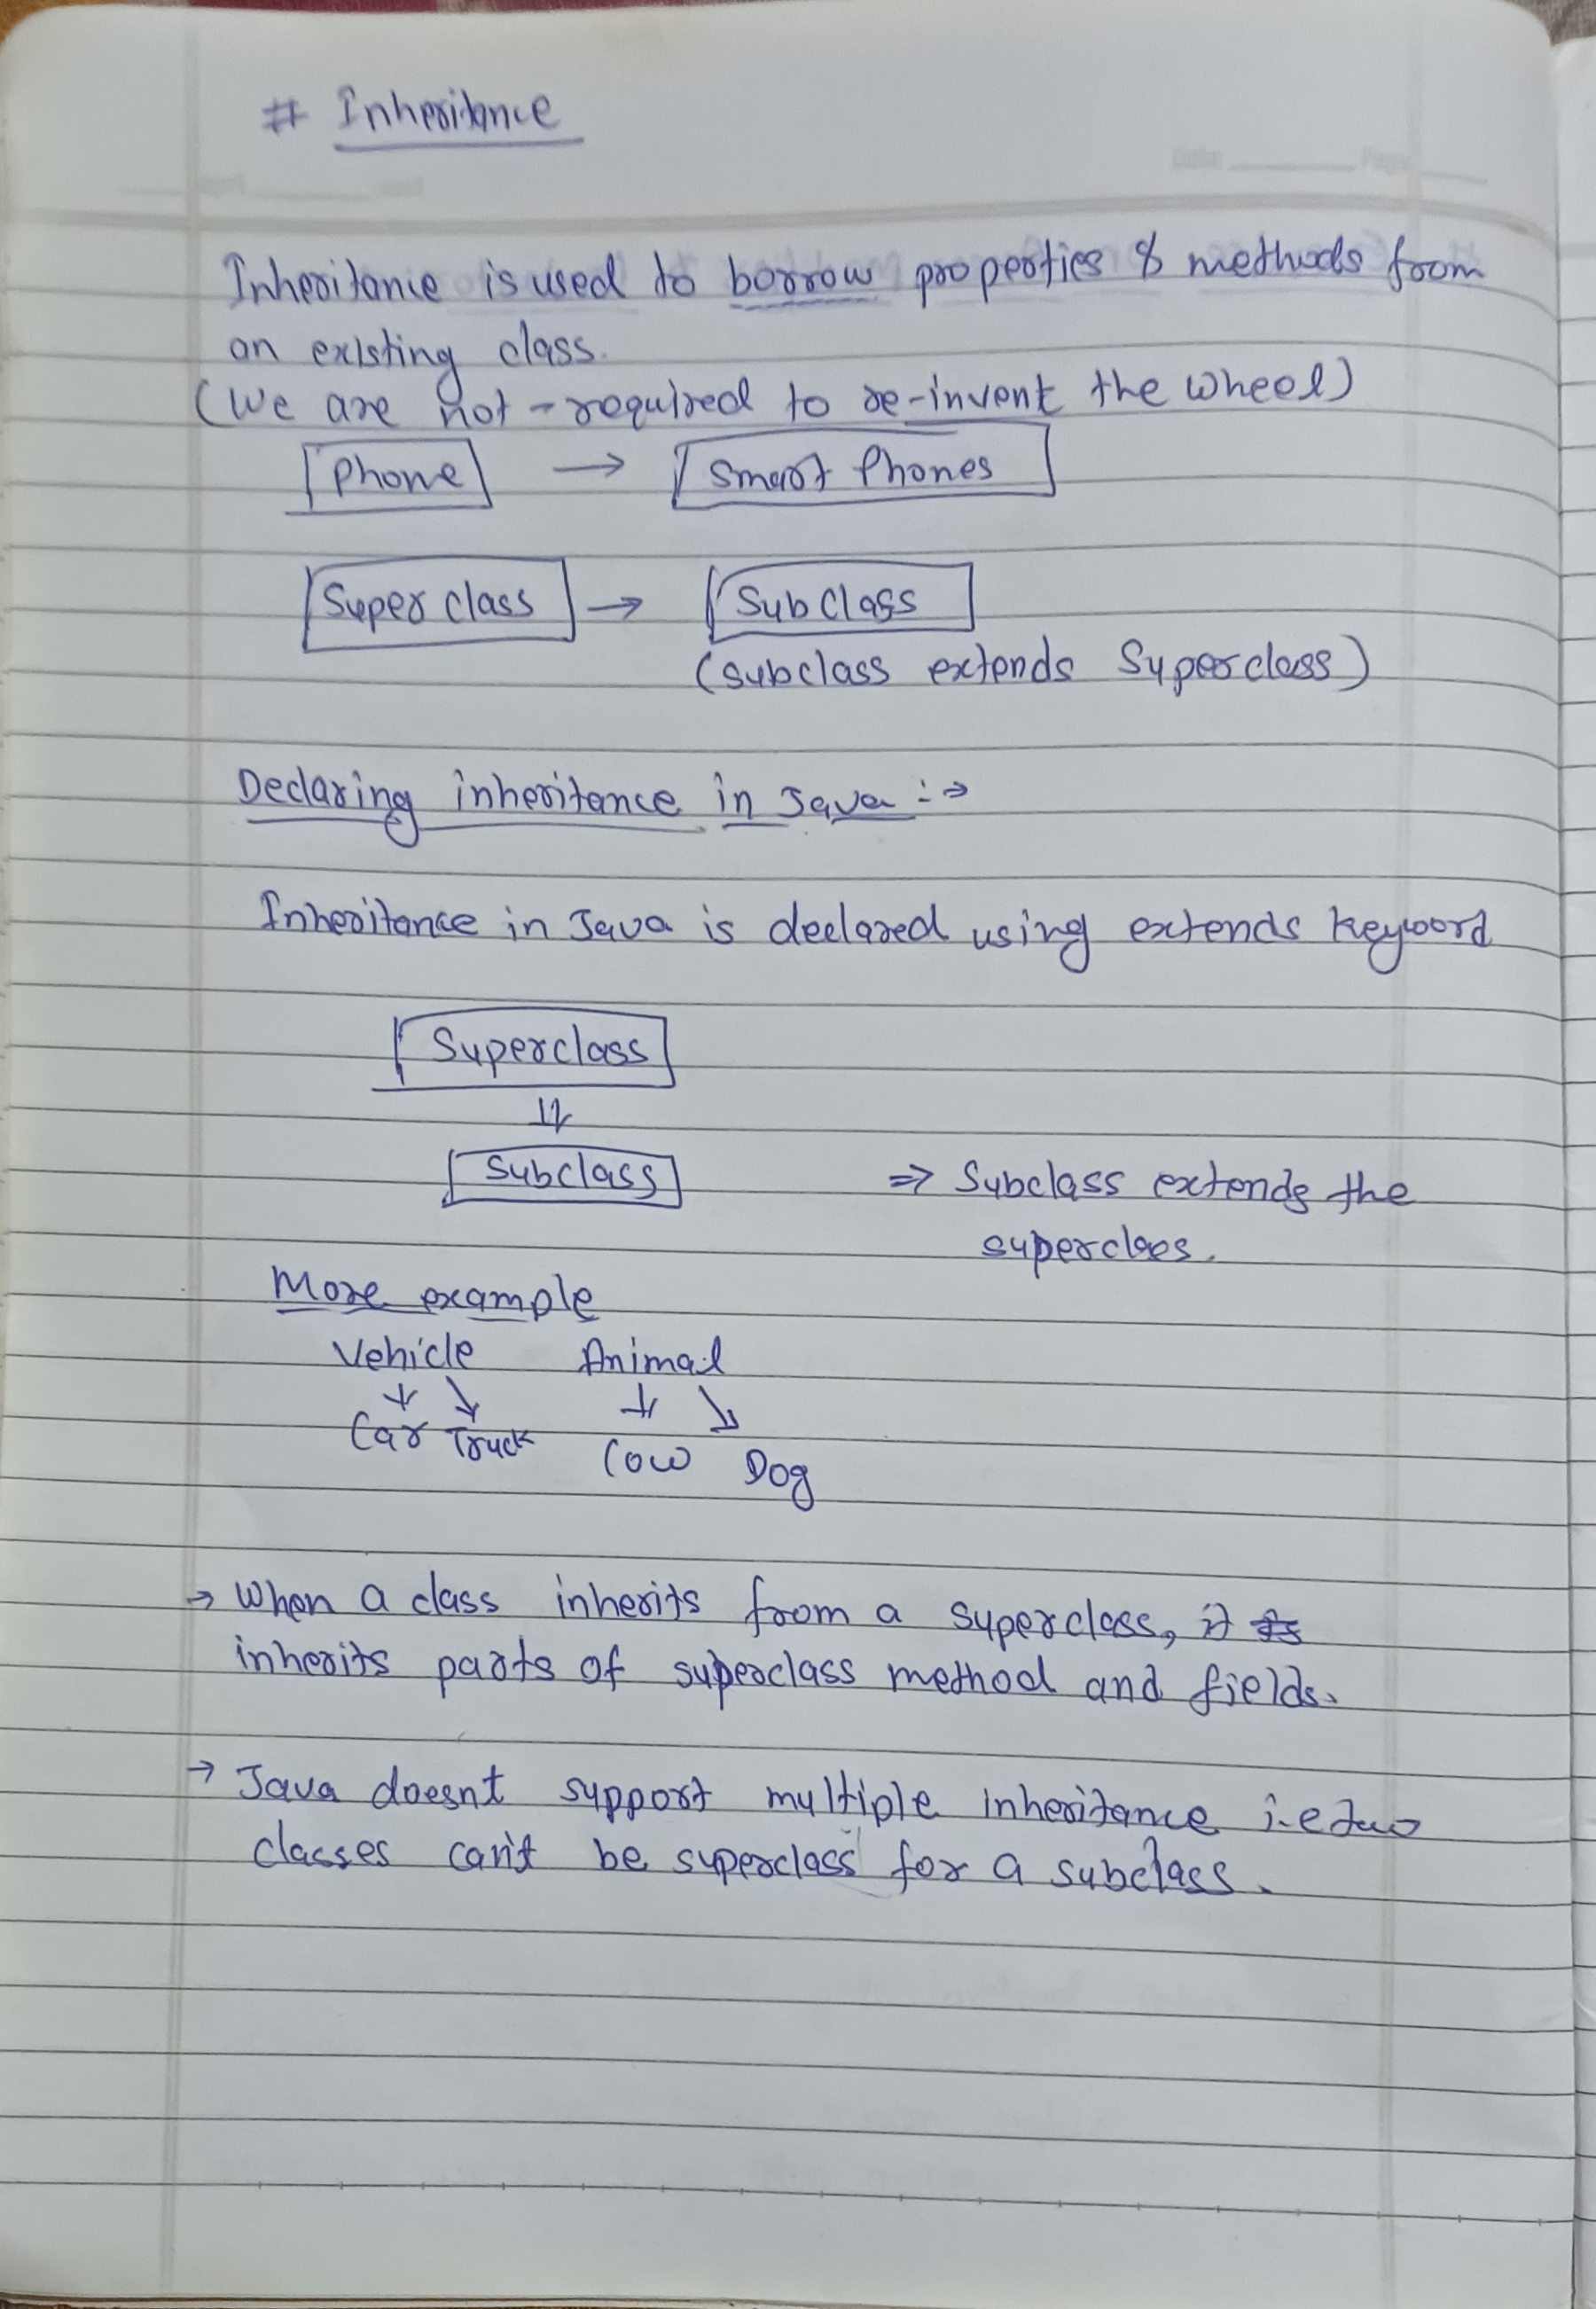 # Inheritance
Inheritance is used to borrow properties & methods from
an existing class.
(We are not-required to re-invent the wheel)
Phone → Smart Phones
Super class → Sub Class
(subclass extends Superclass)
Declaring inheritance in Java :→
Inheritance in Java is declared using extends keyword
Superclass
Subclass ⇒ Subclass extends the
superclass.
More example
Vehicle Animal
Car Truck Cow Dog
→ When a class inherits from a superclass, it
inherits parts of superclass method and fields.
→ Java doesnt support multiple inheritance i.e two
classes can't be superclass for a subclass.